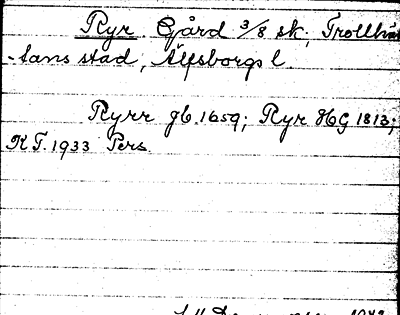 Ryr. Gård 3/8 sk, Trollhät
-tans stad, Älfsborgs l.
Ryrr jb. 1659; Ryr HG 1813;
KT. 1933 Pers.